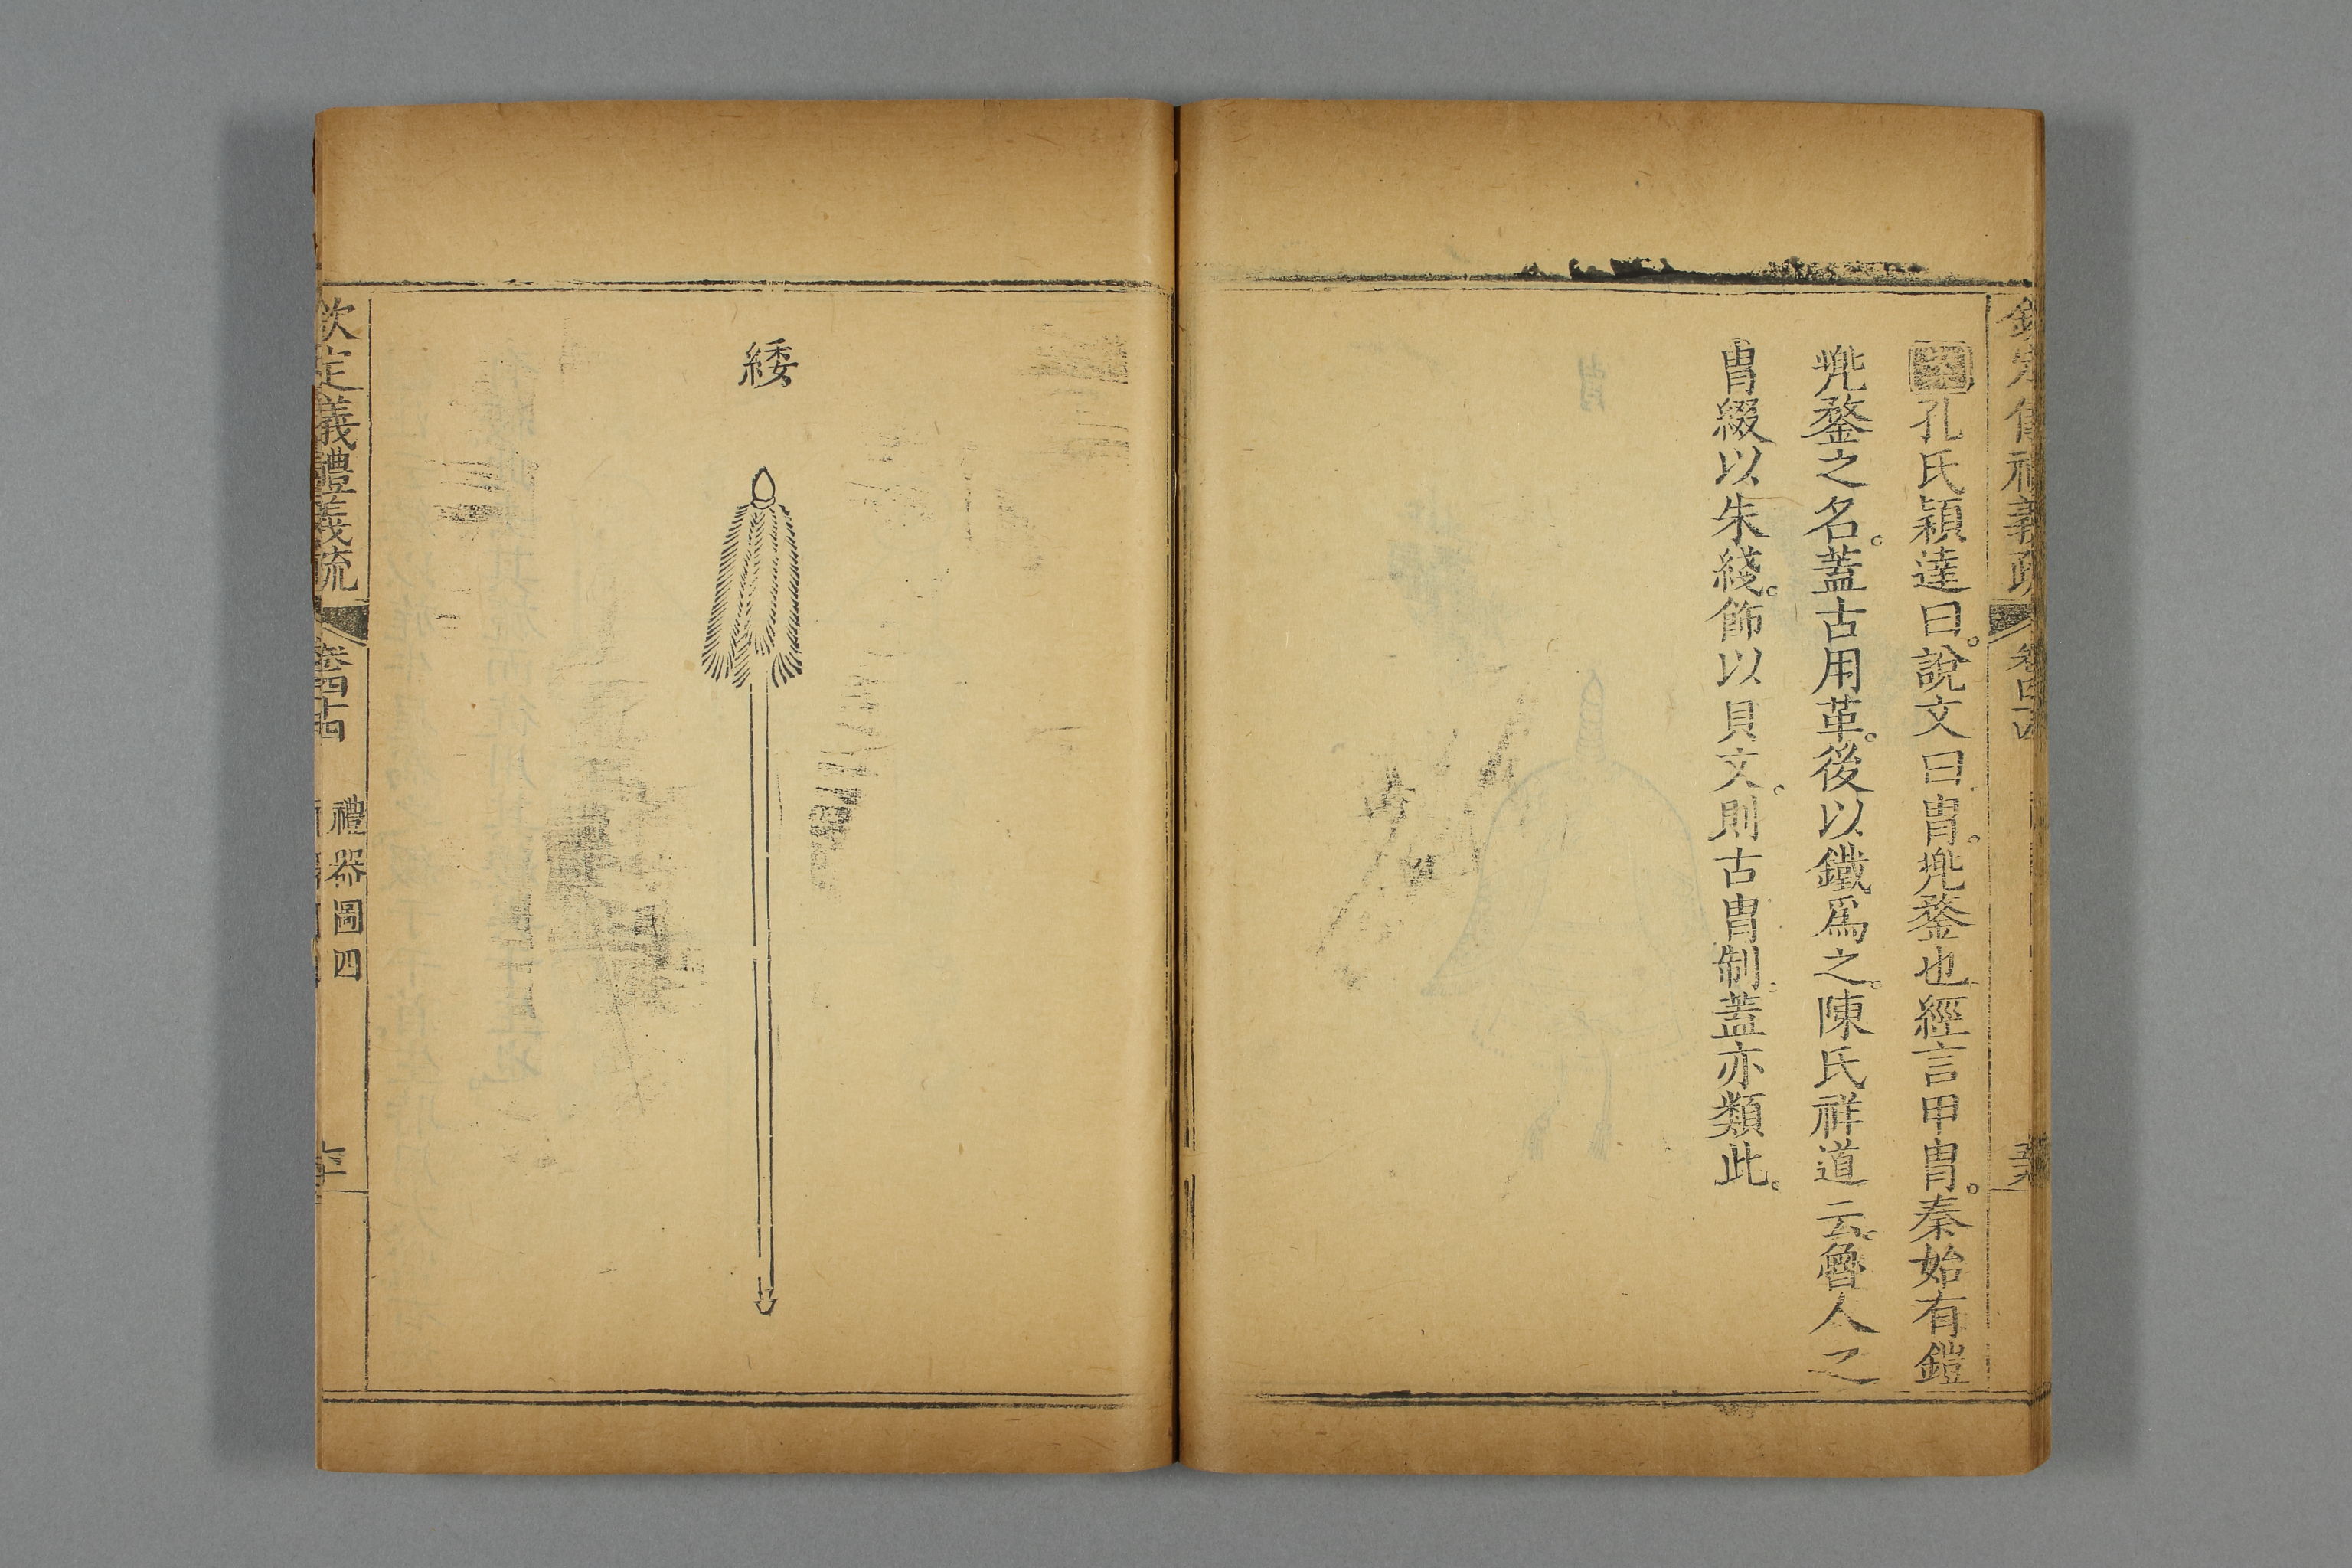 欽定儀禮義疏
卷四十四
孔氏穎達曰。說文曰冑。兠鍪也經言甲冑。秦始有鎧
兠鍪之名。蓋古用革。後以鐵爲之。陳氏祥道云。魯人之
冑綴以朱綫。飾以貝文。則古冑制。蓋亦類此。
緌
欽定義禮義疏
卷四十四
禮器圖四